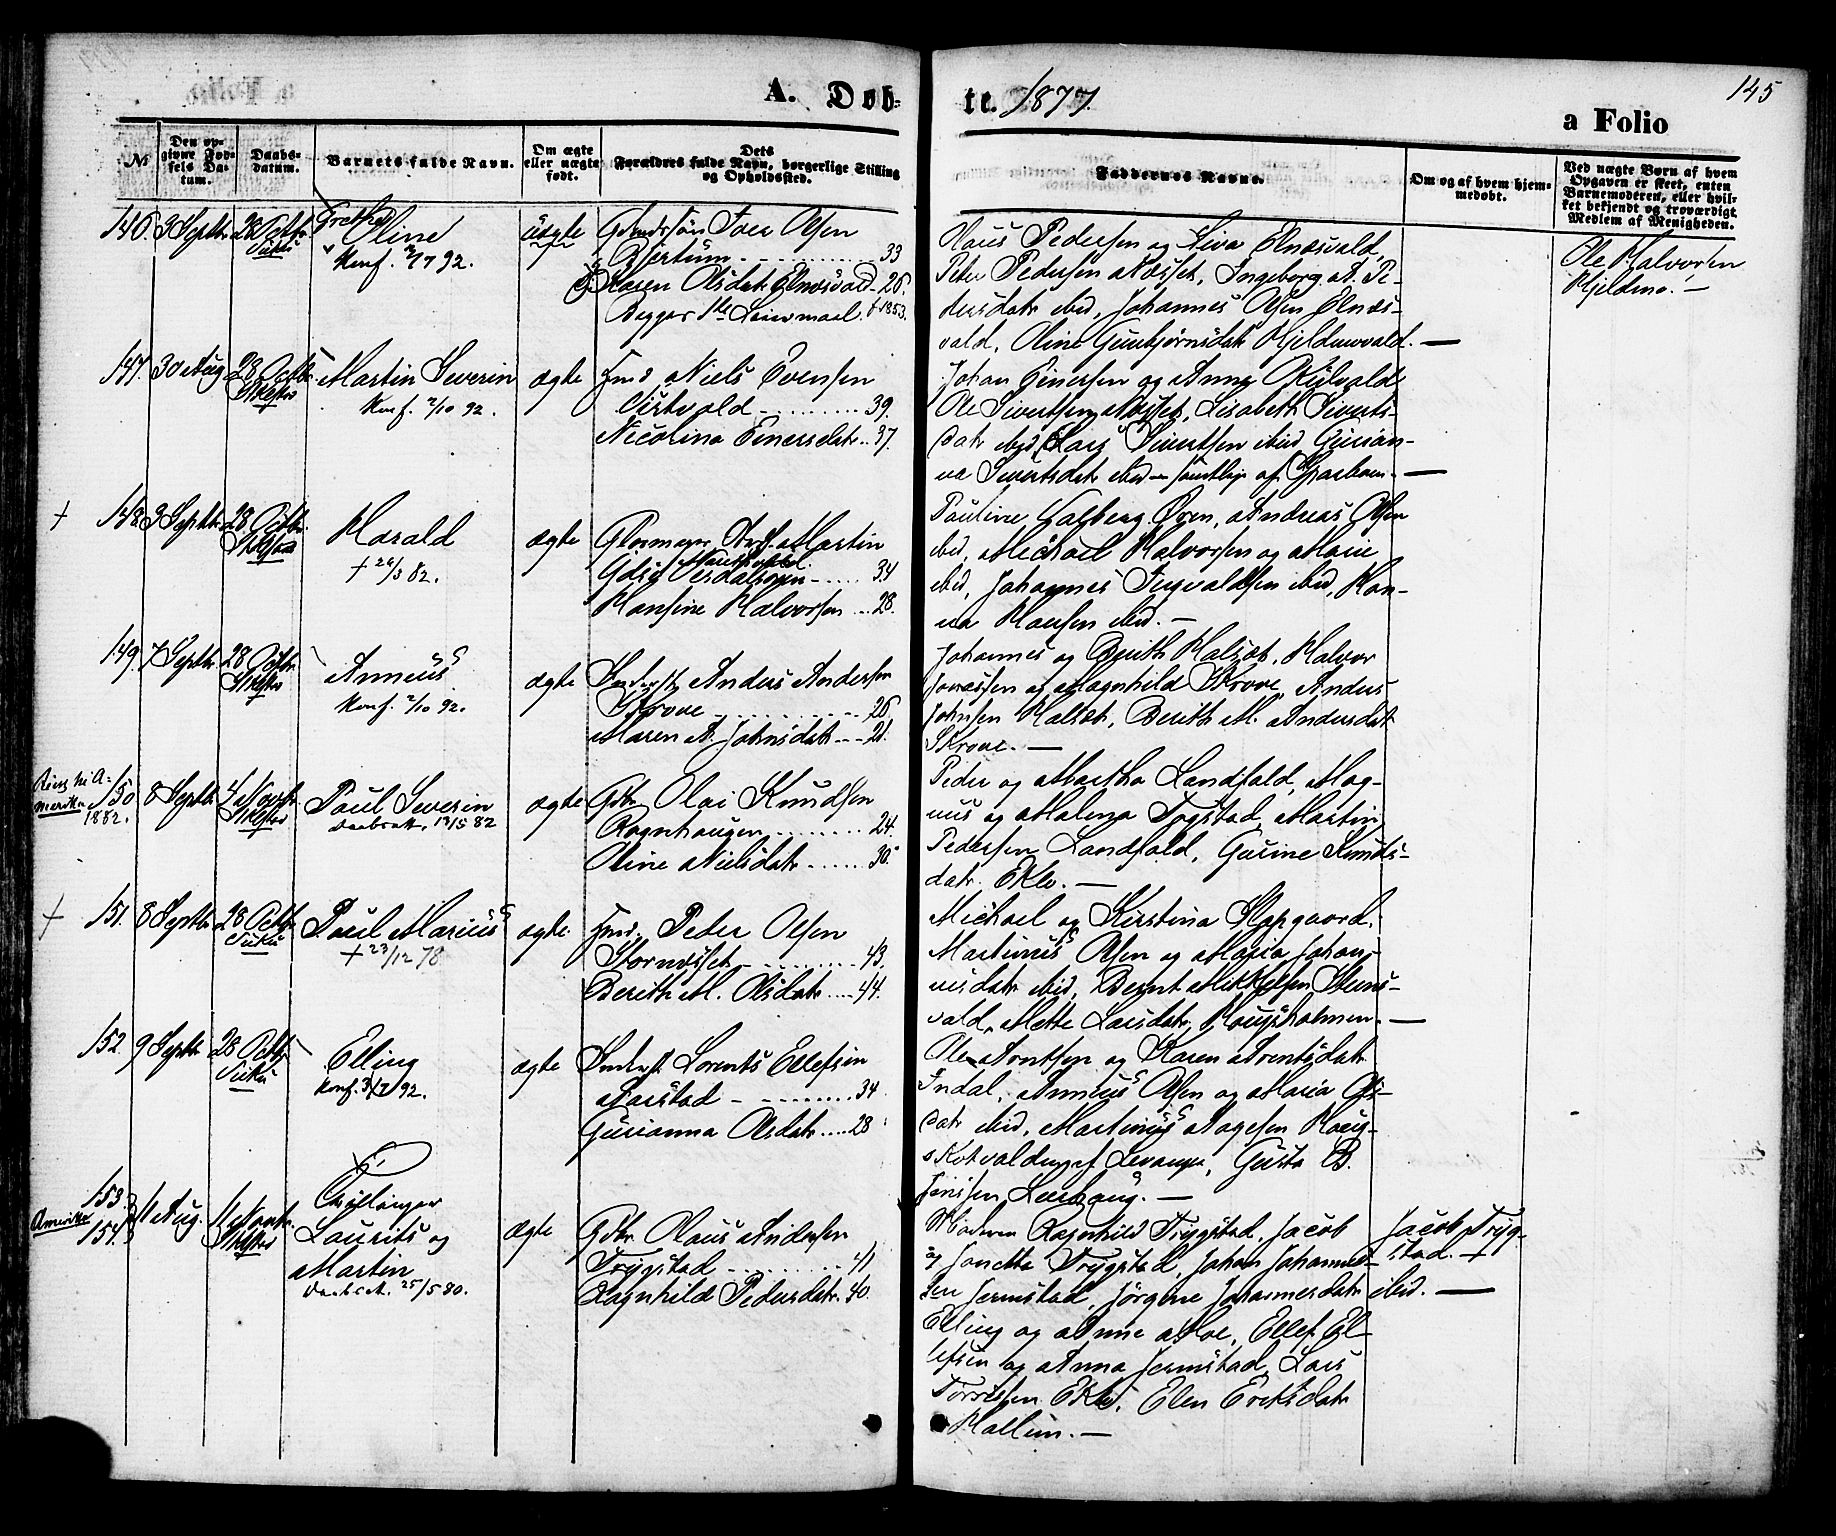 145
A. Døb-
te. 1877.
a Folio
№
Den op-
givne Fød-
sels Da-
tum.
Daabs-
datum.
Barnets fulde Navn.
Om ægte
eller uægte
født.
Dets
Forældres fulde Navn, borgerlige Stilling
og Opholdssted.
Faddernes Navne.
Om og af hvem hjem-
medøbt.
Ved uægte Børn af hvem
Opgaven er skeet, enten
Barnemoderen, eller hvil-
ket bekjendt og troværdigt
Medlem af Menigheden.
146. 3 Septbr 28 Octbr
Vukü
Grethe
Oline
Konf. 92.
üægte
Olsen
33
Karen Olsdatr Elnesvald 26.
Begges 1ste Leiermaal. f. 1853.
Claus Pedersen og Elnesvald,
Peter Pedersen Næsset, Ingeborg A. Pe-
dersdatr ibid, Johannes Olsen Elnes-
vald, Oline Gunbjørnsdatr Hjeldenvald. —
Ole Halvorsen
Hjeldmo. —
147. 30 Aug 28 Octbr
Martin Severin
Konf. 2/10 92.
ægte
Niels Evensen
39.
Nicolina Einersdatr 37.
Johan Einersen og Anna
Ole Sivertsen Næsset, Lisabeth Siverts-
datr ibid, Lars Sivertsen ibid, Gurian-
na Sivertsdatr ibid —
+ 148. 3 Septbr 28 Octbr
Harald
+ 24/3 82.
ægte
Martin
Verdalsøren 34
Hansine Halvorsen 28.
Pauline Øren, Andreas Olsen
ibid, Michael Halvorsen og Marie
ibid, Johannes Ingvaldsen ibid, Han-
na Hansen ibid. —
149. 7 Septbr 28 Octbr
Anneus
Konf. 2/10 92.
ægte
Anders Andersen
Skrove 26
Maren A. Johnsdatr 21.
Johannes og Berith Halset, Halvor
Jonassen og Magnhild Skrove, Anders
Johnsen Halset, Berith M. Andersdatr
Skrove. —
Reist til A-
merika
1882.
150 8 Septbr 4 Novbr
Paul Severin
Daabsatt. 13/5 82
ægte
Gdbr Olai Knudsen
Rognhaugen 24.
Oline Nielsdatr 30.
Peder og Martha Landfald, Mag-
nus og Malena Trygstad, Martin
Pedersen Landfald, Gusine Knuds-
datr Eklo. —
+ 151. 8 Septbr 28 Octbr
Vukü
Paul Marius
+ 23/12 78
ægte.
Peder Olsen
Stornesset 43.
Berith M. Olsdatr 44.
Michael og Kirstina Slapgaard,
Martinus Olsen og Maria Johan-
nisdatr ibid, Bernt Mikkelsen Stens-
vald, Mette Larsdatr, Haugsholmen. —
152 9 Septbr 28 Octbr
Vukü
Elling
Konf. 92.
ægte
Lorents Ellefsen
34
Gurianna Olsdatr 28
Ole Arntsen og Karen Arntsdatr
Indal, Anneus Olsen og Maria Ols-
datr ibid, Martinus Aagesen Haug-
Levanger, Gusta B.
Jensen
153. }
Amerika
154. }
1 Aug. 4 Novbr.
Tvillinger
Laurits og
Martin
Daabsatt. 25/5 80.
ægte
Gdbr Olaus Andersen
Trygstad 41
Ragnhild Pedersdatr 40.
Moderen Ragnhild Trygstad, Jacob
og Jonetta Trygstad, Johan Johannes-
sen Jermstad, Jørgine Johannesdatr ibid. —
Elling og Anne Moe, Ellef El-
lefsen og Anna Jermstad, Lars
Torresen Eklo, Elen Eriksdatr
Hallem. —
Jacob Tryg-
stad. +